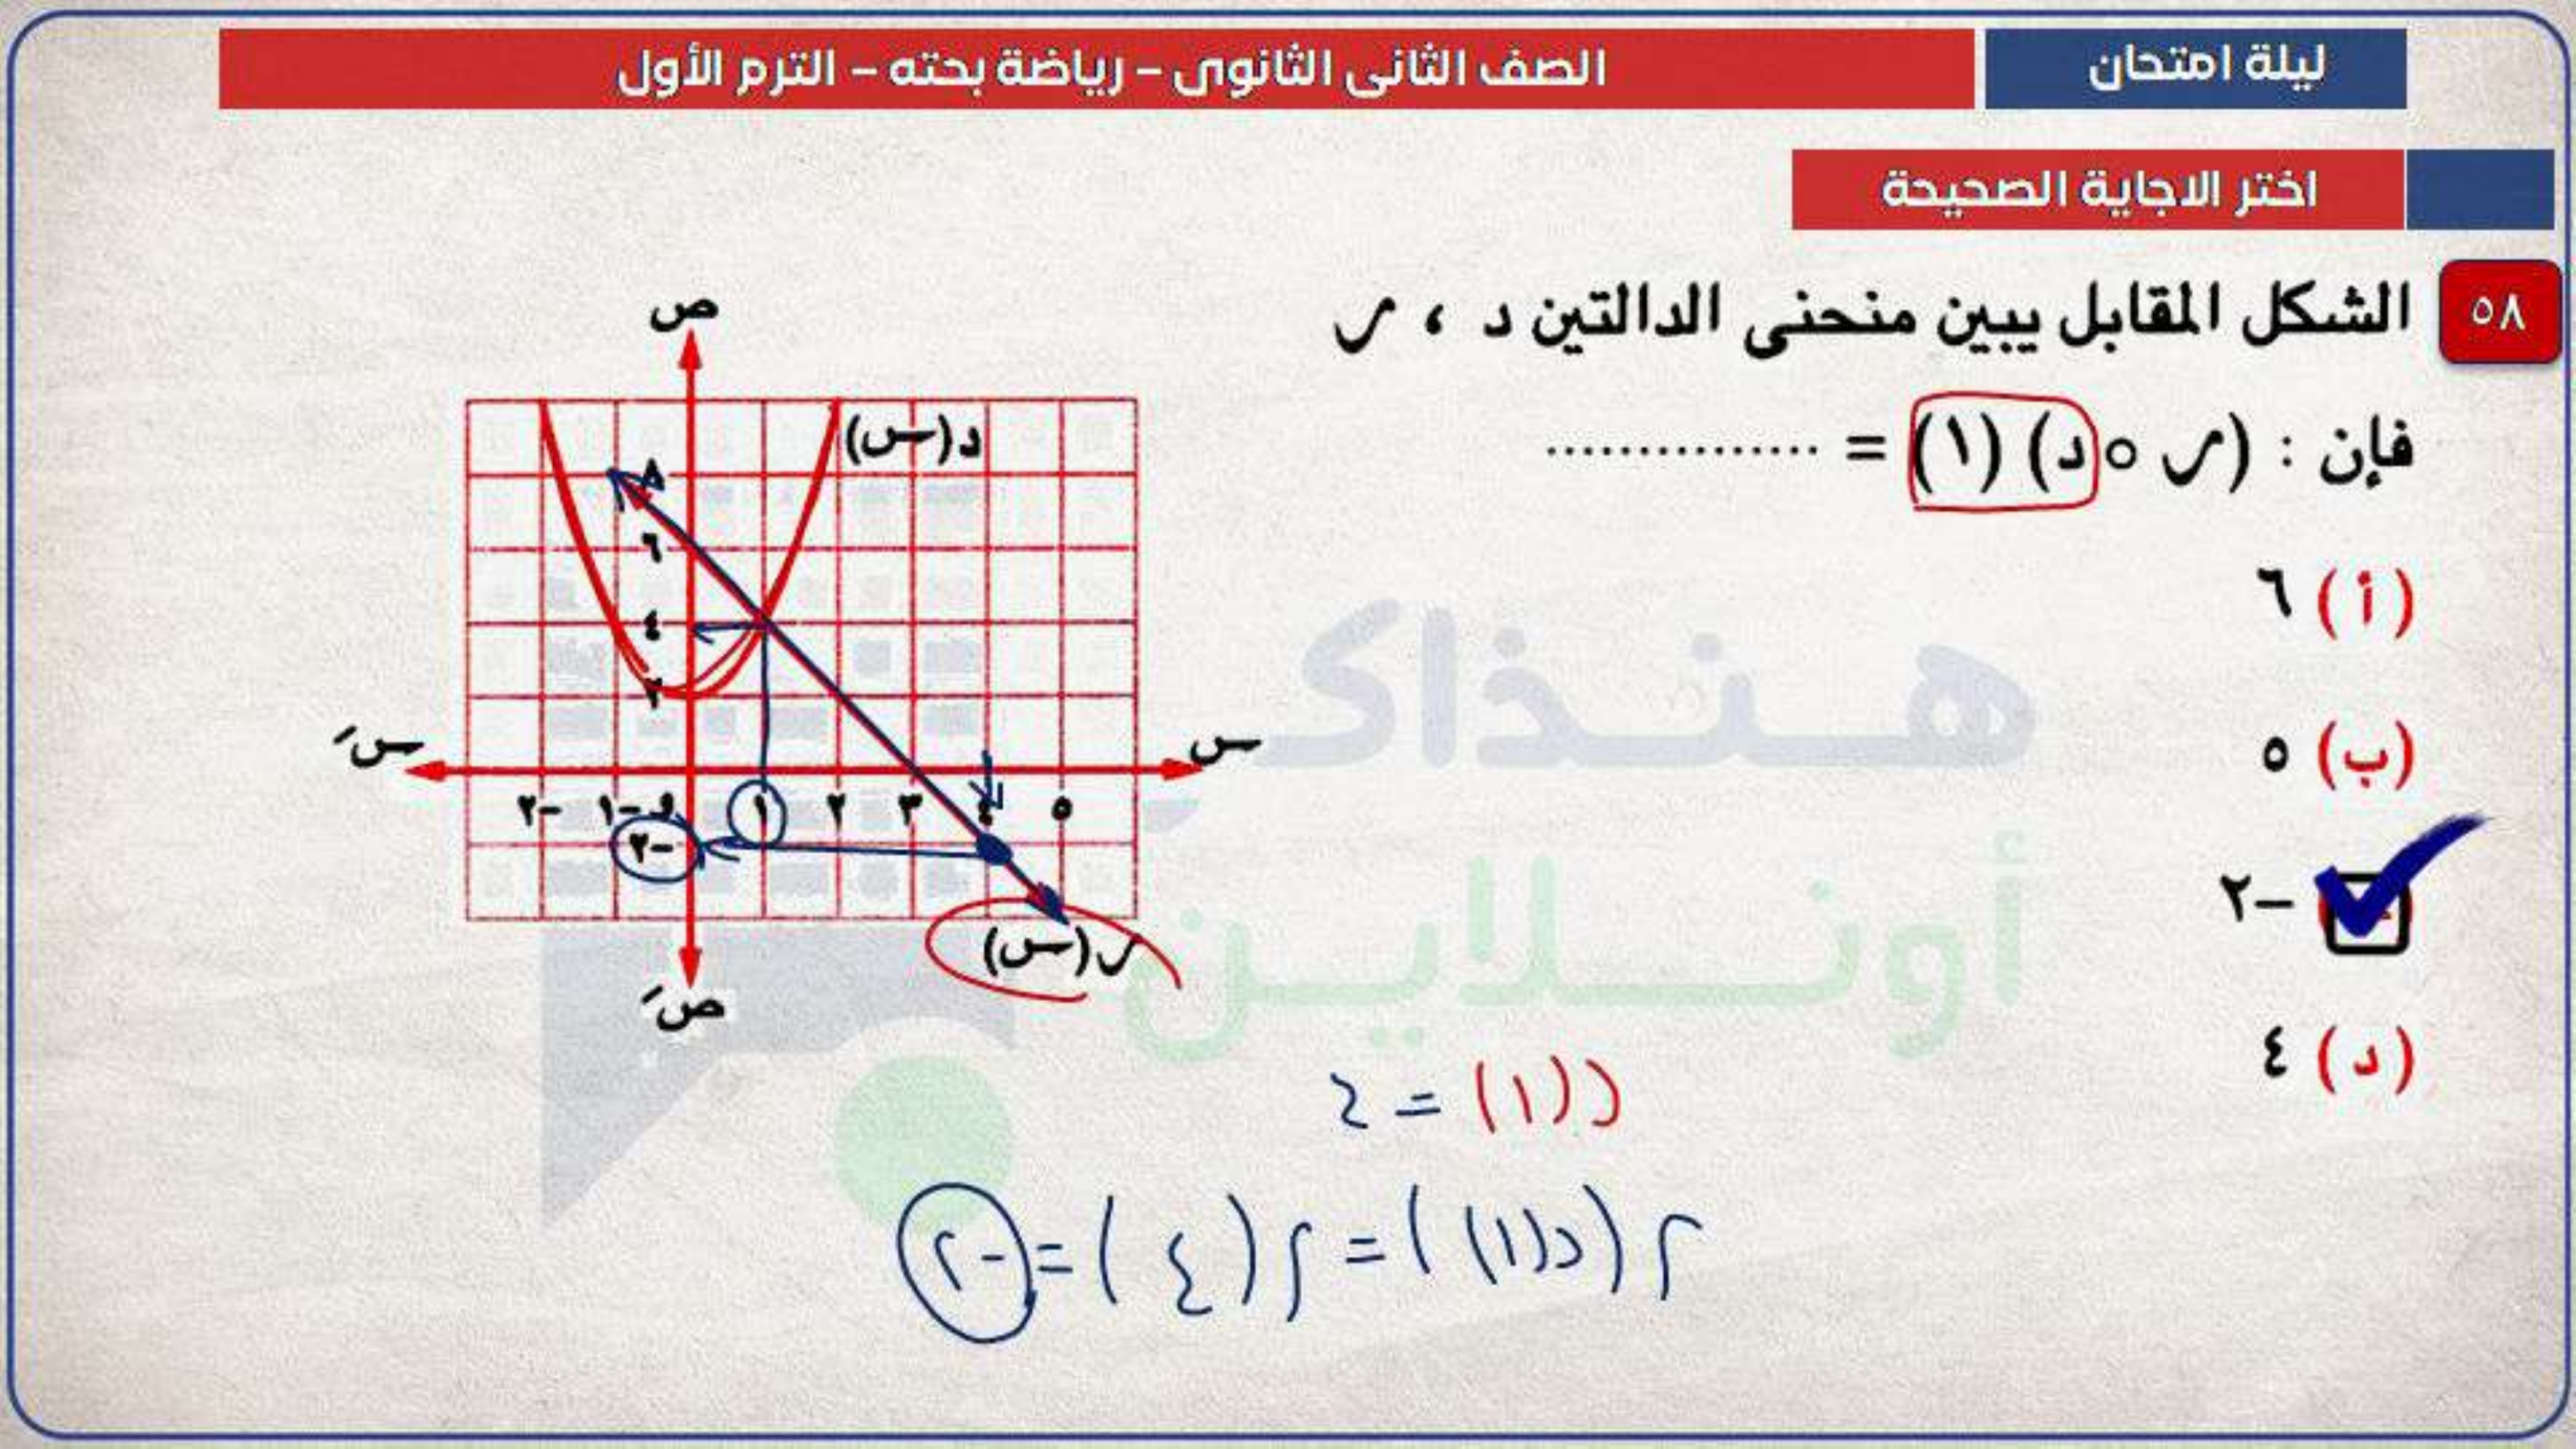 ليلة امتحان
الصف الثانى الثانوى – رياضة بحته – الترم الأول
اختر الاجاية الصحيحة
٥٨
الشكل المقابل يبين منحنى الدالتين د ، ر
فإن : (ر ∘ د) (١) = ...............
(أ) ٦
(ب) ٥
–٢
(د) ٤
ص
د(س)
٨
٦
٤
٢
سَ
س
–٢ –١ و ١ ٢ ٣ ٤ ٥
–٢
ر(س)
صَ
هنذاكر
أونلاين
د(١) = ٤
ر(د(١)) = ر(٤) = -٢